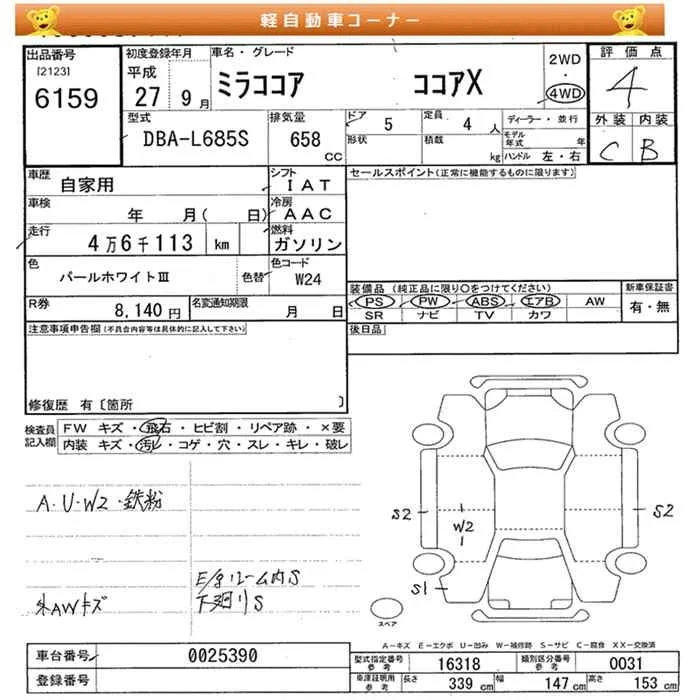 軽自動車コーナー
出品番号
[2123]
6159
初度登録年月
平成
27 9月
車名・グレード
ミラココア ココアX
2WD
・
4WD
評価点
4
外装 内装
C B
型式
DBA-L685S
排気量
658
cc
ドア
5
定員
4 人
形状
積載
kg
ディーラー・並行
モデル年式 年
ハンドル 左・右
車歴
自家用
シフト
IAT
車検
年 月( 日)
冷房
AAC
走行
4万6千113 km
燃料
ガソリン
色
パールホワイトⅢ
色替
色コード
W24
R券
8,140円
名変通知期限
月 日
セールスポイント(正常に機能するものに限ります)
装備品(純正品に限り○をつけてください)
新車保証書
PS PW ABS エアB AW
有・無
SR ナビ TV カワ
後日品
注意事項申告欄(不具合内容等は具体的に記入して下さい)
修復歴 有〔箇所 〕
検査員記入欄
FW キズ・飛石・ヒビ割・リペア跡・×要
内装 キズ・汚レ・コゲ・穴・スレ・キレ・破レ
A・U・W2・鉄粉
外AWキズ
E/gルーム内S
下廻りS
S2
W2
S2
S1
スペア
A−キズ E−エクボ U−凹み W−補修跡 S−サビ C−腐食 XX−交換済
車台番号
0025390
登録番号
型式指定番号 参考
16318
類別区分番号 参考
0031
車庫証明用 参考
長さ 339 cm
幅 147 cm
高さ 153 cm